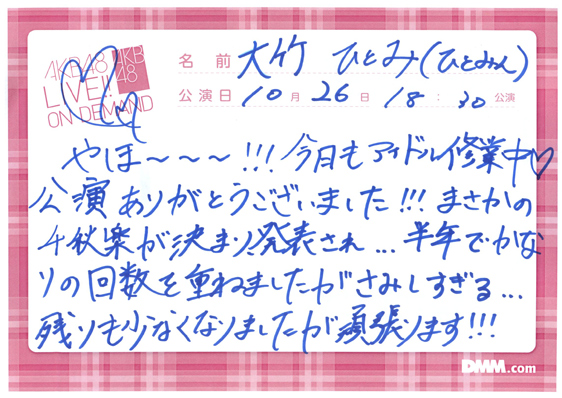 AKB48 AKB48
LIVE!!
ON DEMAND
名前 大竹 ひとみ(ひとみん)
公演日 10月26日 18:30公演
やほ〜〜〜!!! 今日もアイドル修業中♡
公演ありがとうございました!!! まさかの
千秋楽が決まり発表され... 半年でかな
りの回数を重ねましたがさみしすぎる...
残りも少なくなりましたが頑張ります!!!
DMM.com